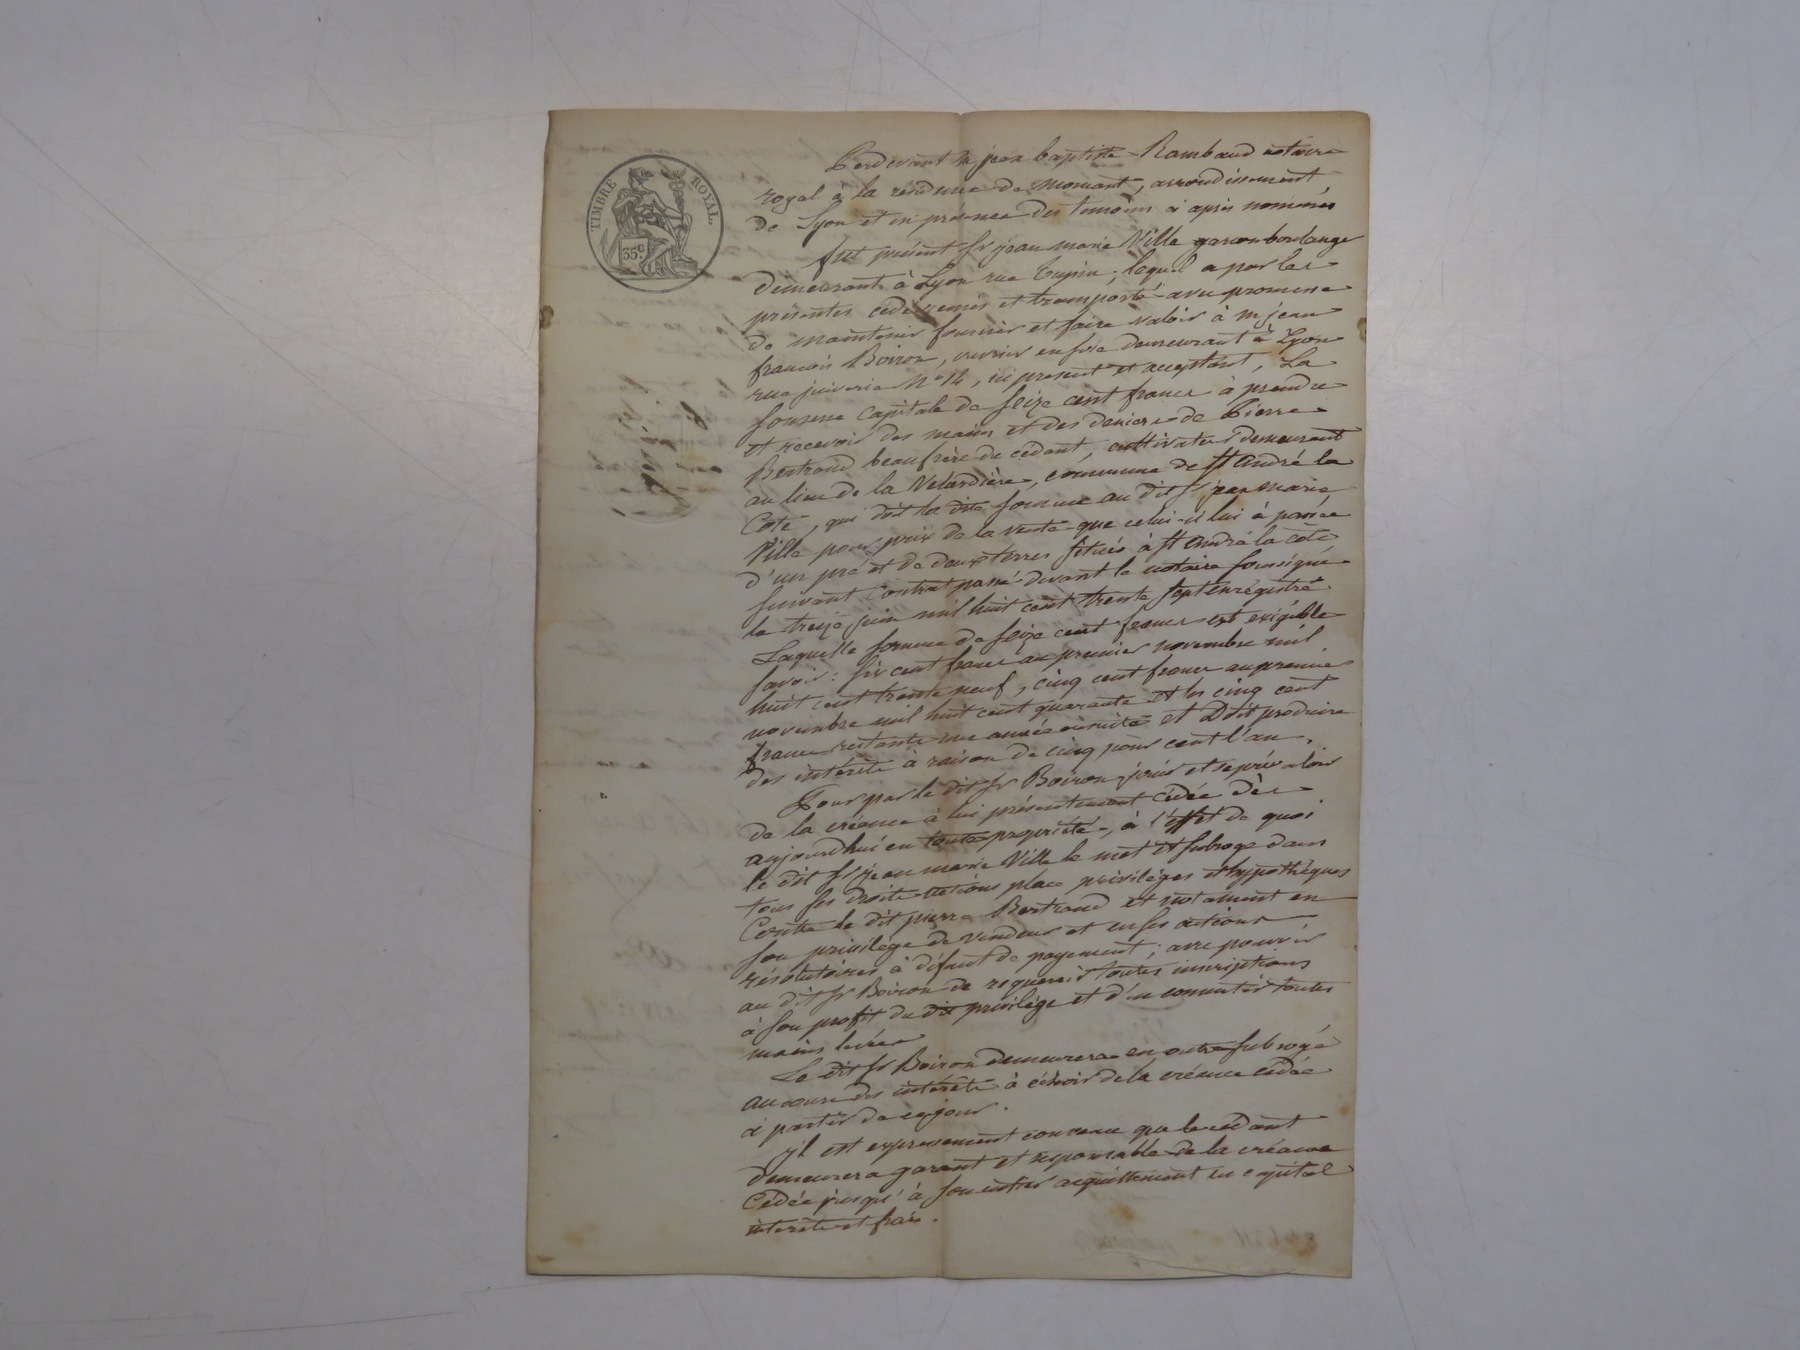 TIMBRE ROYAL.
35c.
Perdevant Me jean baptiste Rambaud notaire
royal à la résidence de Mornant, arrondissement
de Lyon et en présence des temoins ci après nommés
fut présent sr jean marie Ville garcon boulanger
demeurant à Lyon rue Tupin; lequel a par les
présentes cédé remis et transporté avec promesse
de maintenir fournir et faire valoir à mr jean
francois Boiron, ouvrier en soie demeurant à Lyon
rue juiverie No 12, ici présent et acceptant, La
somme capitale de seize cent francs à prendre
et recevoir des mains et des deniers de Pierre
Bertrand beaufrère du cédant, cultivateur demeurant
au lieu de la Velardière, commune de St André la
Cote, qui doit la dite somme au dit sr jean marie
Ville pour prix de la vente que celui-ci lui à passée
d'un pré et de deux terres situés à St André la côte
suivant Contrat passé devant le notaire soussigné
le treize juin mil huit cent trente sept enregistré
Laquelle somme de seize cent francs est exigible
savoir: six cent francs au premier novembre mil
huit cent trente neuf, cinq cent francs au premier
novembre mil huit cent quarante et les cinq cent
francs restants une année ensuite et doit produire
des intérêts à raison de cinq pour cent l'an.
Pour par le dit sr Boiron jouir et se prévaloir
de la créance à lui présentement cédée dès
aujourdhui en toute propriété, à l'effet de quoi
le dit sr jean marie Ville le met et subroge dans
tous ses droits actions place privilèges et hypothèques
Contre le dit pierre Bertrand et notament en
son privilège de vendeur et en ses actions
résolutoires à défaut de payement; avec pouvoir
au dit sr Boiron de requerir toutes inscriptions
à son profit du dit privilège et d'en consentir toutes
mains levées
Le dit sr Boiron demeurera en outre subrogé
au cours des intérêts à échoir de la créance cédée
à partir de ce jour.
yl est expressement convenu que le cédant
demeurera garant et responsable de la créance
Cédée jusqu'à son entier acquittement en capital
intérêts et frais.